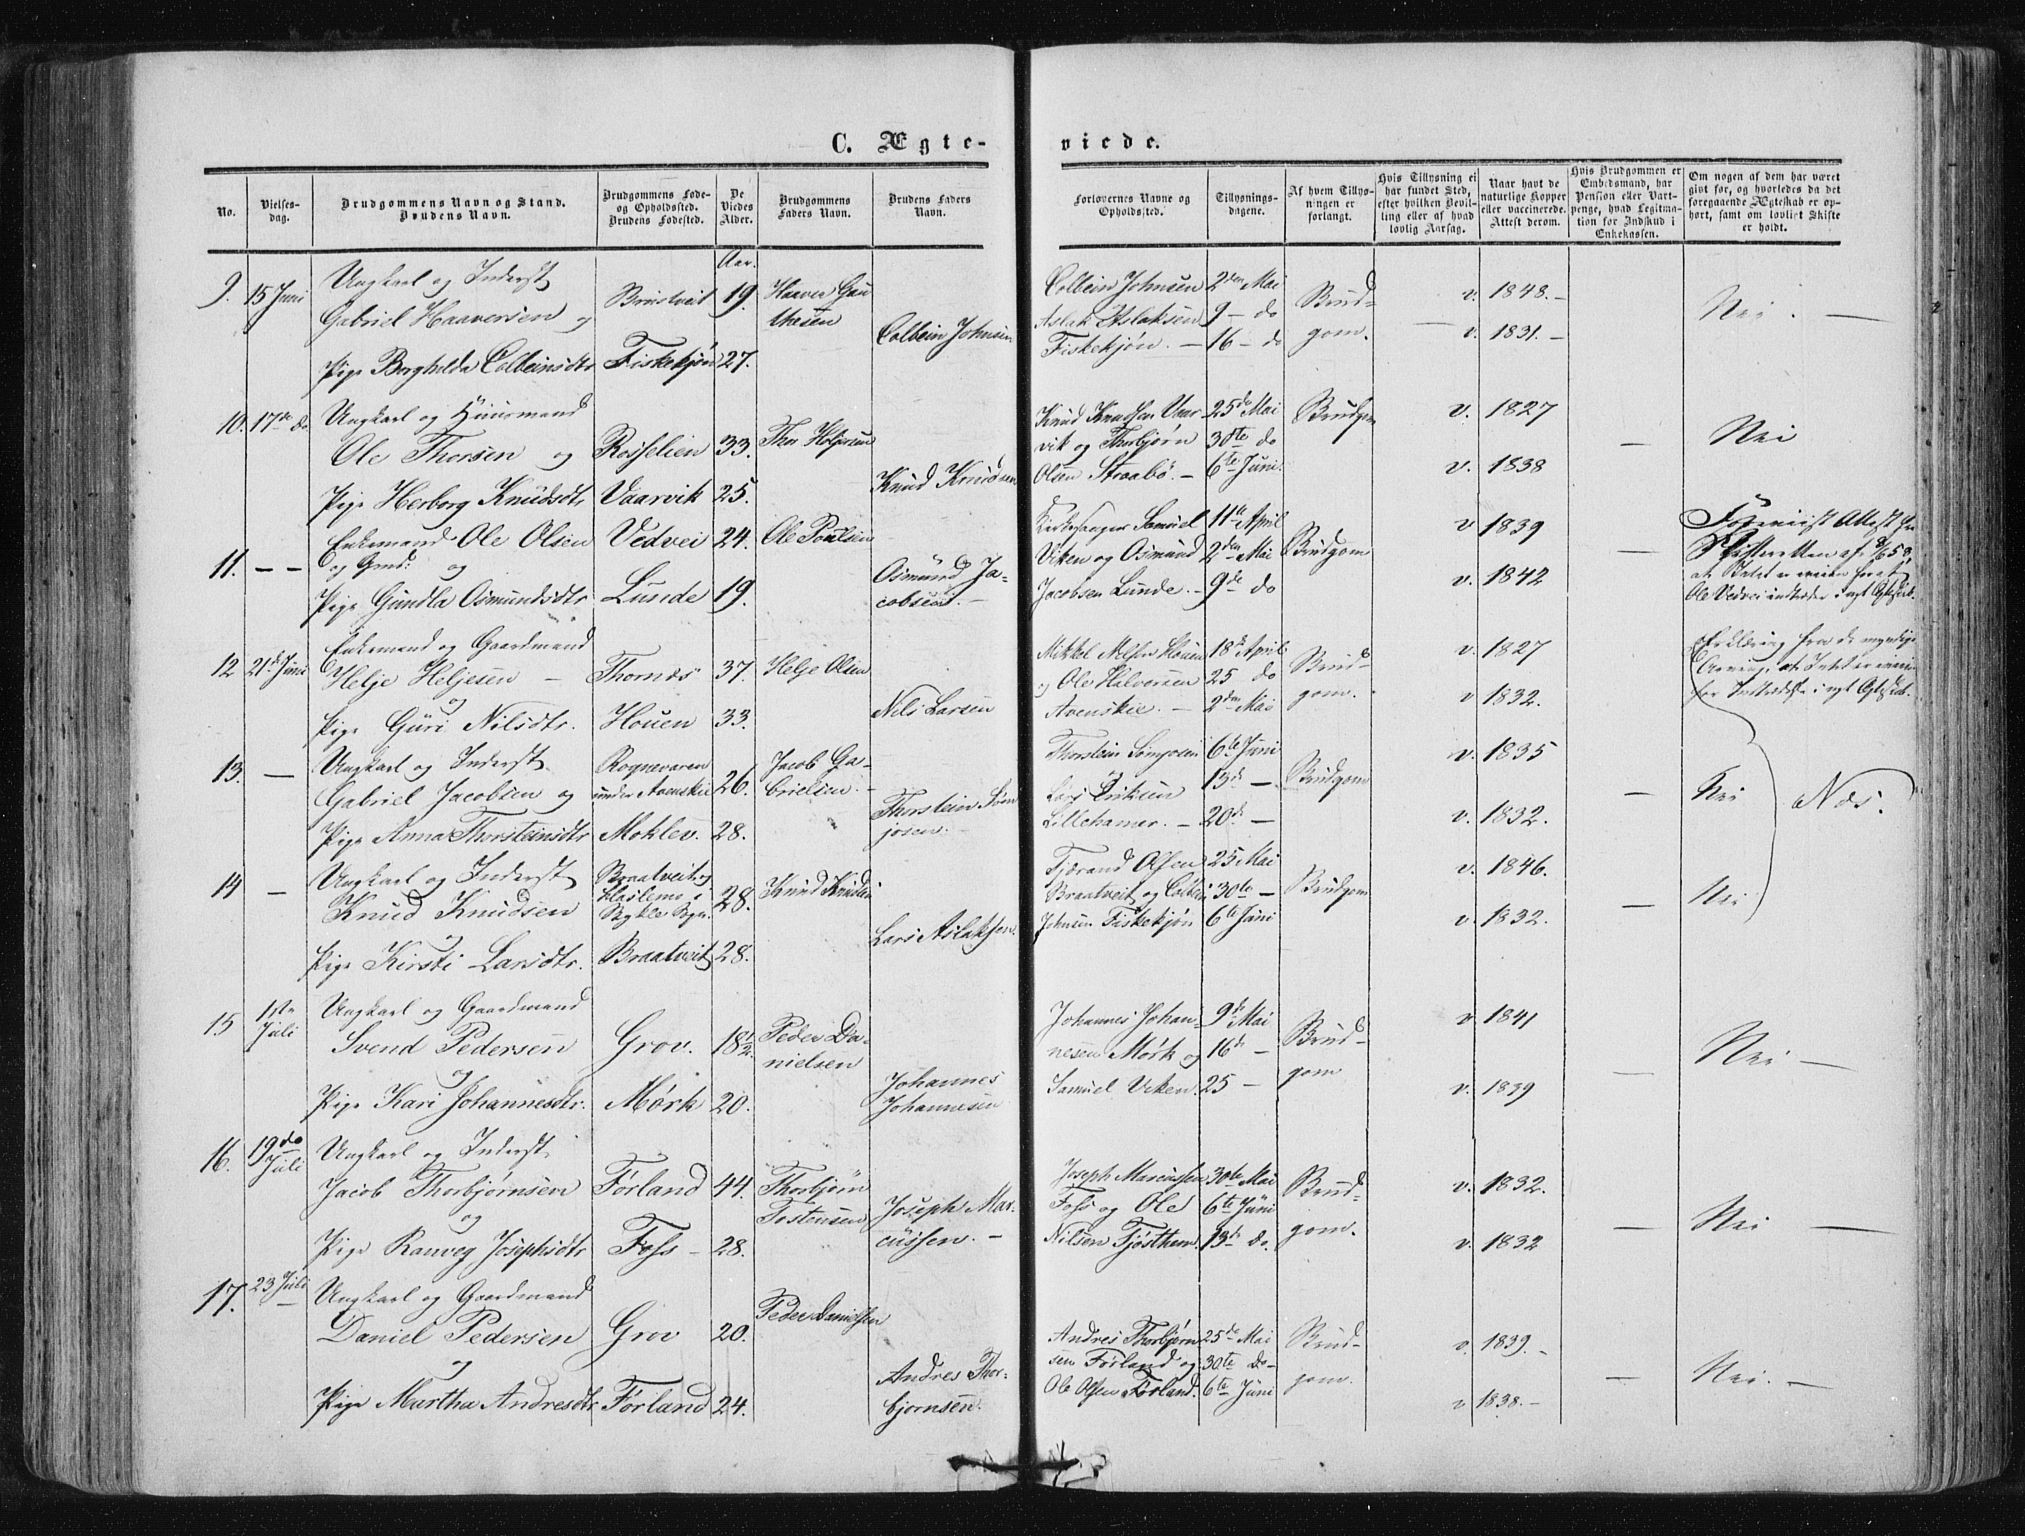 C. Ægte-
viede.
No.
Vielses-
dag.
Brudgommens Navn og Stand.
Brudens Navn.
Brudgommens Føde-
og Opholdssted.
Brudens Fødested.
De
Viedes
Alder.
Brudgommens
Faders Navn.
Brudens Faders
Navn.
Forlovernes Navne og
Opholdssted.
Tillysnings-
dagene.
Af hvem Tillys-
ningen er
forlangt.
Hvis Tillysning ei
har fundet Sted,
efter hvilken Bevil-
ling eller af hvad
lovlig Aarsag.
Naar havt de
naturlige Kopper
eller vaccinerede.
Attest derom.
Hvis Brudgommen er
Embedsmand, har
Pension eller Vart-
penge, hvad Legitima-
tion for Indskud i
Enkekassen.
Om nogen af dem har været
gift før, og hvorledes da det
foregaaende Ægteskab er op-
hørt, samt om lovligt Skifte
er holdt.
Aar.
9. 15 Juni
Ungkarl og Inderst
Gabriel Haaversen og
Pige Borghilda Colbeinsdtr
Brustveit 19.
Fiskekjøn 27.
Haaver Gau
thesen
Colbein Johnsen
Colbein Johnsen
Aslak Aslaksen
Fiskekjøn. —
2den Mai
9 — do
16 — do
Brud-
gom.
v. 1848. —
v. 1831. —
Nei. —
10. 17de do
Ungkarl og Huusmand
Ole Thorsen og
Pige Herborg Knudsdtr
Rosselien 33.
Vaarvik 25.
Thor Heljesen
Knud Knudsen
Knud Knudsen Vaar-
vik og Thorbjørn
Olsen Straabø. —
25de Mai
30te do
6te Juni.
Brudgom
v. 1827
v. 1838
Nei
11. — —
Enkemand Ole Olsen
og Gmd: og
Pige Gundla Osmundsdtr
Vedvei 24.
Lunde 19.
Ole Poulsen
Osmund Ja-
cobsen. —
Kirkesanger Samuel
Viken og Osmund
Jacobsen Lunde. —
11te April
2den Mai
9de do
Brudgom
v 1839
v. 1842
Foreviist Attest fra
Skifteretten af
at Intet er
Ole Vedvei indtræder i nyt Ægtesk.
12 21de Juni
Enkemand og Gaardmand
Helje Heljesen —
og
Pige Guri Nilsdtr.
Thornæs 37.
Houen 33.
Helje Olsen
Nils Larsen
Mikkel Nilsen Houen
og Ole Halvorsen
Avenskie. —
18de April
25 do
2den Mai
Brud-
gom.
v. 1827
v 1832.
Erklæring fra de myndige
Arving, at Intet er
for Indtrædelse i nyt Ægtesk.
13. —
Ungkarl og Inderst
Gabriel Jacobsen og
Pige Anna Thorsteinsdtr
Rognevaren
under Avenskie 26.
Moklev. 28.
Jacob Ga-
brielsen. —
Thorstein Søm
josen. —
Thorstein Sømjosen
Lars Eriksen
Lillehamer. —
6te Juni
13de —
20de —
Brudgom
v. 1835
v. 1832.
Nei
Næs.
14 —
Ungkarl og Inderst
Knud Knudsen
og
Pige Kirsti Larsdtr.
Braatveit og
i
Bykle Sgn. 28.
Braatveit 28.
Knud Knudsen
Lars Aslaksen
Tjærand Olsen
Braatveit og Colbein
Johnsen Fiskekjøn
25 Mai
30te —
6te Juni
Brudgom
v. 1846.
v. 1832.
Nei
15 1ste
Juli
Ungkarl og Gaardmand
Svend Pedersen
og
Pige Kari Johannesdtr.
Grov. 18 1/2.
Mørk 20.
Peder Da-
nielsen
Johannes
Johannesen
Johannes Johan-
nesen Mørk og
Samuel Viken.
9de Mai
16de —
25 —
Brud-
gom
v. 1841
v. 1839
Nei —
16. 19de
Juli
Ungkarl og Inderst
Jacob Thorbjørnsen
og
Pige Ranveg Josephsdtr
Førland 44.
Foss — 28.
Thorbjørn
Tostensen
Joseph Mar-
cussen. —
Joseph Marcussen
Foss og Ole
Nilsen Tjøsthem.
30te Mai
6te Juni
13de do.
Brud-
gom.
v. 1832.
v. 1832
Nei —
17. 23 Juli
—
Ungkarl og Gaardmand
Daniel Pedersen
og
Pige Martha Andresdtr
Grov 20.
Førland 24.
Peder Danielsen
Andres Thor-
bjornsen.
Andres Thorbjørn-
sen Førland og
Ole Olsen Førland.
25de Mai
30te do —
6te Juni
Brud-
gom.
v. 1839. —
v 1838. —
Nei. —